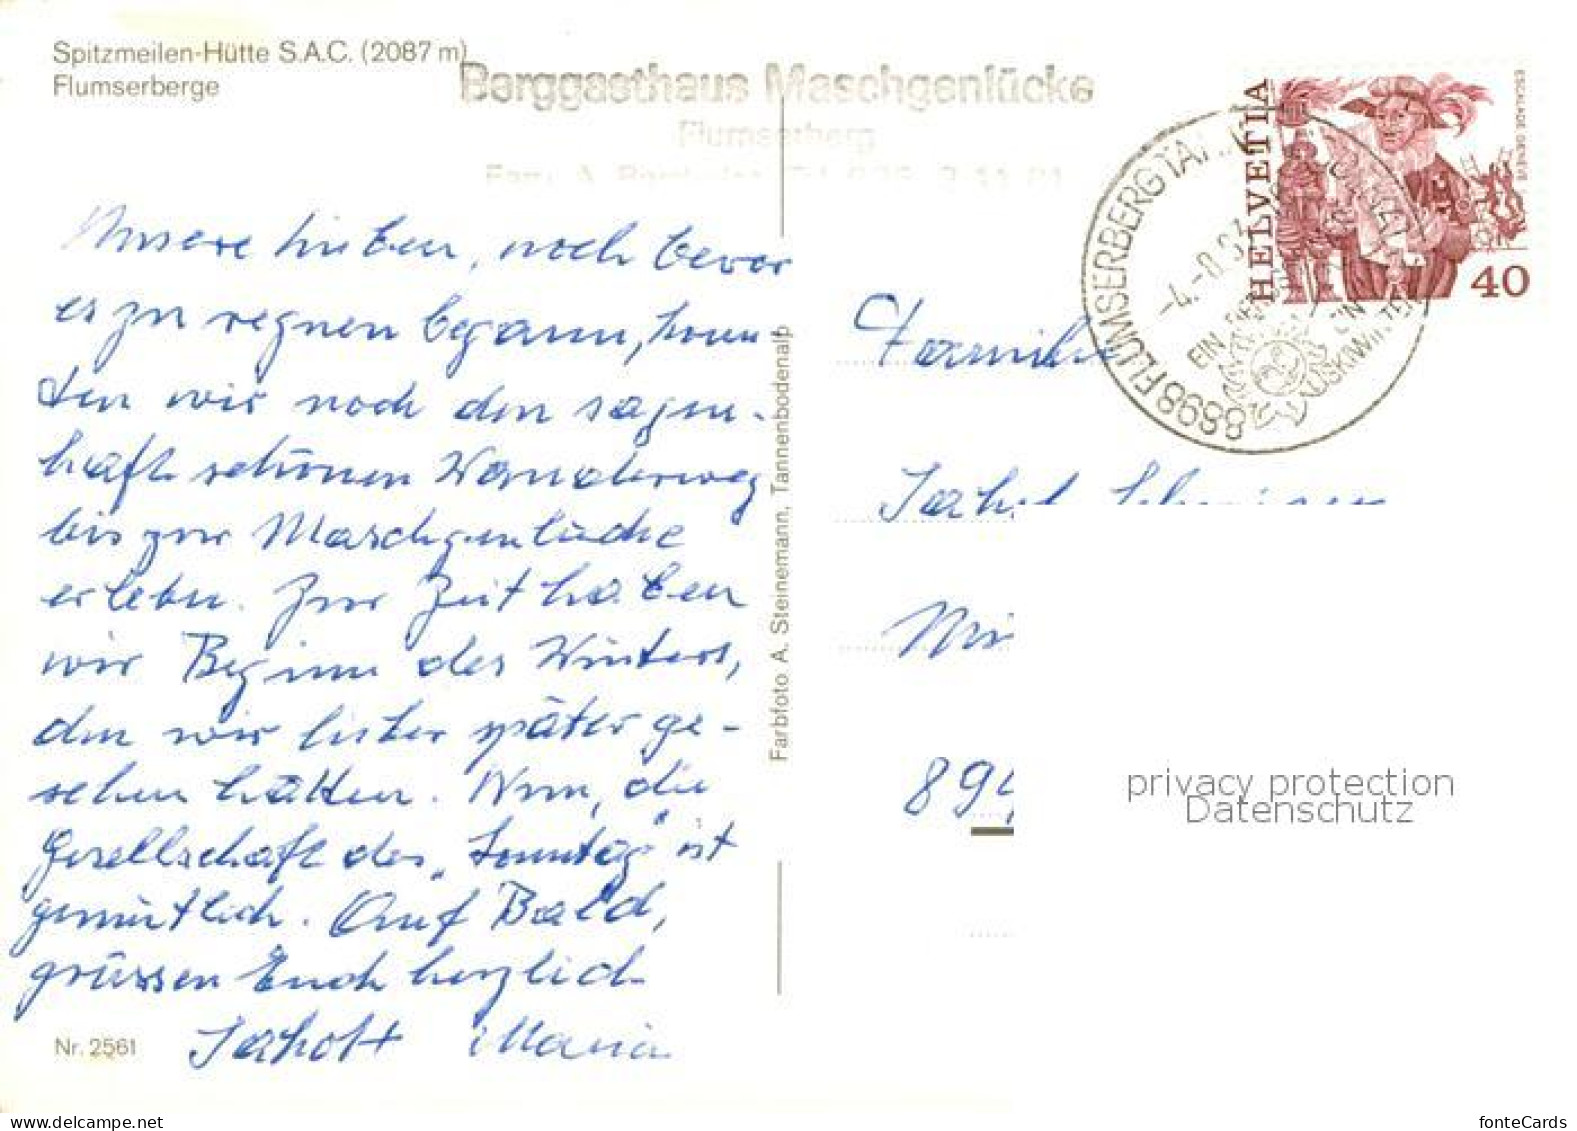 Spitzmeilen-Hütte S.A.C. (2087 m)
Flumserberge
Berggasthaus Maschgenlücke
Flumserberg
HELVETIA
ESCALADE GENÈVE
40
8898 FLUMSERBERG TA
-4.-8.83
EIN
Unsere lieben, noch bevor
es zu regnen begann, konn-
ten wir noch den sagen-
haft schönen Wanderweg
bis zur Maschgenlücke
erleben. Zur Zeit haben
wir Beginn des Winters,
den wir lieber später ge-
sehen hätten. Nun, die
Gesellschaft des „Sonntag" ist
gemütlich. Auf Bald,
grüssen Euch herzlich
Maria
Nr. 2561
Farbfoto A. Steinemann, Tannenbodenalp
Familie
894
privacy protection
Datenschutz
fonteCards